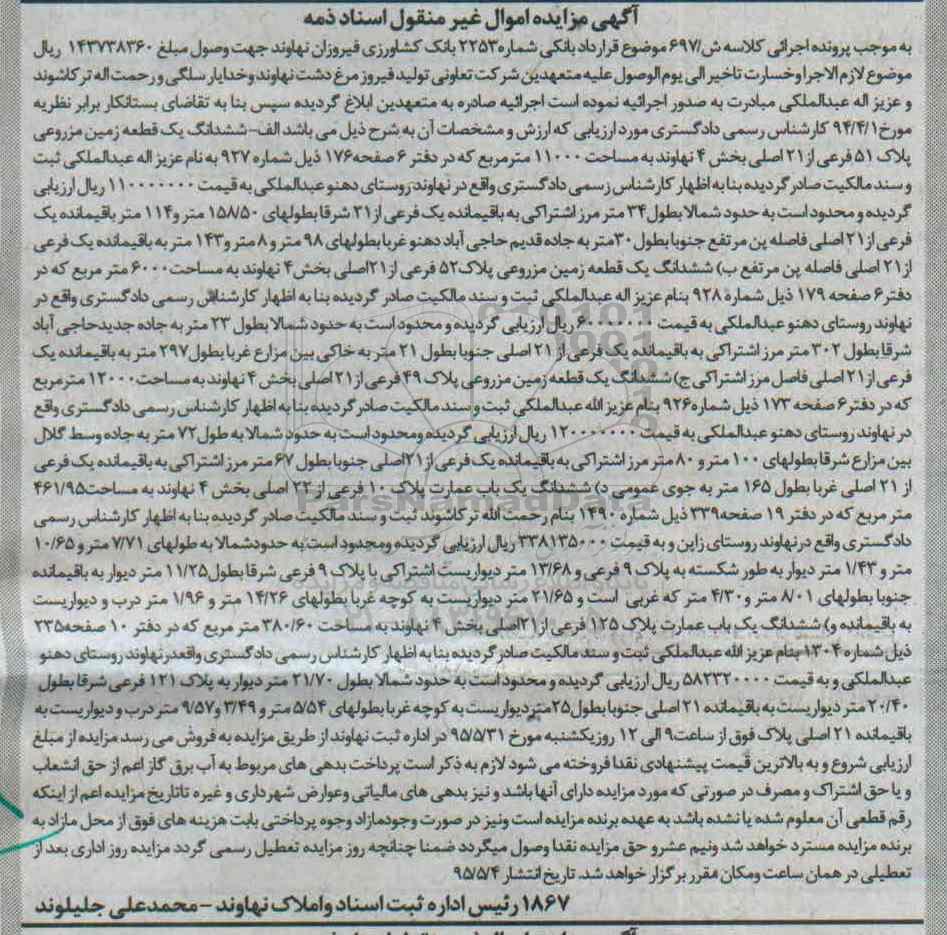 آگهی مزایده اموال غیر منقول اسناد ذمه
به موجب پرونده اجرائی کلاسه ش/۶۹۷ موضوع قرارداد بانکی شماره۲۲۵۳ بانک کشاورزی فیروزان نهاوند جهت وصول مبلغ ۱۴۳۷۳۸۳۶۰ ریال
موضوع لازم الاجرا وخسارت تاخیر الی یوم الوصول علیه متعهدین شرکت تعاونی تولید فیروز مرغ دشت نهاوند وخدایار سلگی و رحمت اله ترکاشوند
و عزیز اله عبدالملکی مبادرت به صدور اجرائیه نموده است اجرائیه صادره به متعهدین ابلاغ گردیده سپس بنا به تقاضای بستانکار برابر نظریه
مورخ۹۴/۴/۱ کارشناس رسمی دادگستری مورد ارزیابی که ارزش و مشخصات آن به شرح ذیل می باشد الف-ششدانگ یک قطعه زمین مزروعی
پلاک ۵۱ فرعی از۲۱ اصلی بخش ۴ نهاوند به مساحت ۱۱۰۰۰ مترمربع که در دفتر ۶ صفحه۱۷۶ ذیل شماره ۹۲۷ به نام عزیز اله عبدالملکی ثبت
و سند مالکیت صادر گردیده بنا به اظهار کارشناس رسمی دادگستری واقع در نهاوند روستای دهنو عبدالملکی به قیمت ۱۱۰۰۰۰۰۰۰ ریال ارزیابی
گردیده و محدود است به حدود شمالا بطول ۳۴ متر مرز اشتراکی به باقیمانده یک فرعی از۲۱ شرقا بطولهای ۱۵۸/۵۰ متر و۱۱۴ متر باقیمانده یک
فرعی از۲۱ اصلی فاصله پن مرتفع جنوبا بطول ۳۰متر به جاده قدیم حاجی آباد دهنو غربا بطولهای ۹۸ متر و ۸ متر و۱۴۳ متر به باقیمانده یک فرعی
از۲۱ اصلی فاصله پن مرتفع ب) ششدانگ یک قطعه زمین مزروعی پلاک۵۲ فرعی از۲۱اصلی بخش۴ نهاوند به مساحت۶۰۰۰ متر مربع که در
دفتر۶ صفحه ۱۷۹ ذیل شماره ۹۲۸ بنام عزیز اله عبدالملکی ثبت و سند مالکیت صادر گردیده بنا به اظهار کارشناس رسمی دادگستری واقع در
نهاوند روستای دهنو عبدالملکی به قیمت ۶۰۰۰۰۰۰۰ ریال ارزیابی گردیده و محدود است به حدود شمالا بطول ۲۳ متر به جاده جدیدحاجی آباد
شرقا بطول ۳۰۲ متر مرز اشتراکی به باقیمانده یک فرعی از ۲۱ اصلی جنوبا بطول ۲۱ متر به خاکی بین مزارع غربا بطول۲۹۷ متر به باقیمانده یک
فرعی از۲۱ اصلی فاصل مرز اشتراکی ج) ششدانگ یک قطعه زمین مزروعی پلاک ۴۹ فرعی از۲۱ اصلی بخش ۴ نهاوند به مساحت۱۲۰۰۰ مترمربع
که در دفتر۶ صفحه ۱۷۳ ذیل شماره۹۲۶ بنام عزیز الله عبدالملکی ثبت و سند مالکیت صادر گردیده بنا به اظهار کارشناس رسمی دادگستری واقع
در نهاوند روستای دهنو عبدالملکی به قیمت ۱۲۰۰۰۰۰۰۰ ریال ارزیابی گردیده ومحدود است به حدود شمالا به طول ۷۲ متر به جاده وسط گلال
بین مزارع شرقا بطولهای ۱۰۰ متر و ۸۰ متر مرز اشتراکی به باقیمانده یک فرعی از ۲۱اصلی جنوبا بطول ۶۷ متر مرز اشتراکی به باقیمانده یک فرعی
از ۲۱ اصلی غربا بطول ۱۶۵ متر به جوی عمومی د) ششدانگ یک باب عمارت پلاک ۱۰ فرعی از۲۲ اصلی بخش ۴ نهاوند به مساحت۴۶۱/۹۵
متر مربع که در دفتر ۱۹ صفحه۳۳۹ ذیل شماره ۱۴۹۰ بنام رحمت الله ترکاشوند ثبت و سند مالکیت صادر گردیده بنا به اظهار کارشناس رسمی
دادگستری واقع درنهاوند روستای زاین و به قیمت ۳۳۸۱۳۵۰۰۰ ریال ارزیابی گردیده ومحدود است به حدودشمالا به طولهای ۷/۷۱ متر و ۱۰/۶۵
متر و ۱/۴۳ متر دیوار به طور شکسته به پلاک ۹ فرعی و ۱۳/۶۸ متر دیواریست اشتراکی با پلاک ۹ فرعی شرقا بطول۱۱/۲۵ متر دیوار به باقیمانده
جنوبا بطولهای ۸/۰۱ متر و ۴/۳۰ متر که غربی است و ۲۱/۶۵ متر دیواریست به کوچه غربا بطولهای ۱۴/۲۶ متر و ۱/۹۶ متر درب و دیواریست
به باقیمانده و) ششدانگ یک باب عمارت پلاک ۱۲۵ فرعی از۲۱اصلی بخش ۴ نهاوند به مساحت ۳۸۰/۶۰ متر مربع که در دفتر ۱۰ صفحه۲۳۵
ذیل شماره ۱۳۰۴ بنام عزیز الله عبدالملکی ثبت و سند مالکیت صادر گردیده بنا به اظهار کارشناس رسمی دادگستری واقعدرنهاوند روستای دهنو
عبدالملکی و به قیمت ۵۸۲۳۲۰۰۰۰ ریال ارزیابی گردیده و محدود است به حدود شمالا بطول ۲۱/۷۰ متر دیوار به پلاک ۱۲۱ فرعی شرقا بطول
۲۰/۴۰ متر دیواریست به باقیمانده ۲۱ اصلی جنوبا بطول۲۵متردیواریست به کوچه غربا بطولهای ۵/۵۴ متر و ۳/۴۹ و۹/۵۷ متر درب و دیواریست به
باقیمانده ۲۱ اصلی پلاک فوق از ساعت۹ الی ۱۲ روزیکشنبه مورخ ۹۵/۵/۳۱ در اداره ثبت نهاوند از طریق مزایده به فروش می رسد مزایده از مبلغ
ارزیابی شروع و به بالاترین قیمت پیشنهادی نقدا فروخته می شود لازم به ذکر است پرداخت بدهی های مربوط به آب برق گاز اعم از حق انشعاب
و یا حق اشتراک و مصرف در صورتی که مورد مزایده دارای آنها باشد و نیز بدهی های مالیاتی وعوارض شهرداری و غیره تاتاریخ مزایده اعم از اینکه
رقم قطعی آن معلوم شده یا نشده باشد به عهده برنده مزایده است ونیز در صورت وجودمازاد وجوه پرداختی بابت هزینه های فوق از محل مازاد به
برنده مزایده مسترد خواهد شد ونیم عشرو حق مزایده نقدا وصول میگردد ضمنا چنانچه روز مزایده تعطیل رسمی گردد مزایده روز اداری بعد از
تعطیلی در همان ساعت ومکان مقرر برگزار خواهد شد. تاریخ انتشار ۹۵/۵/۴
۱۸۶۷ رئیس اداره ثبت اسناد واملاک نهاوند - محمدعلی جلیلوند